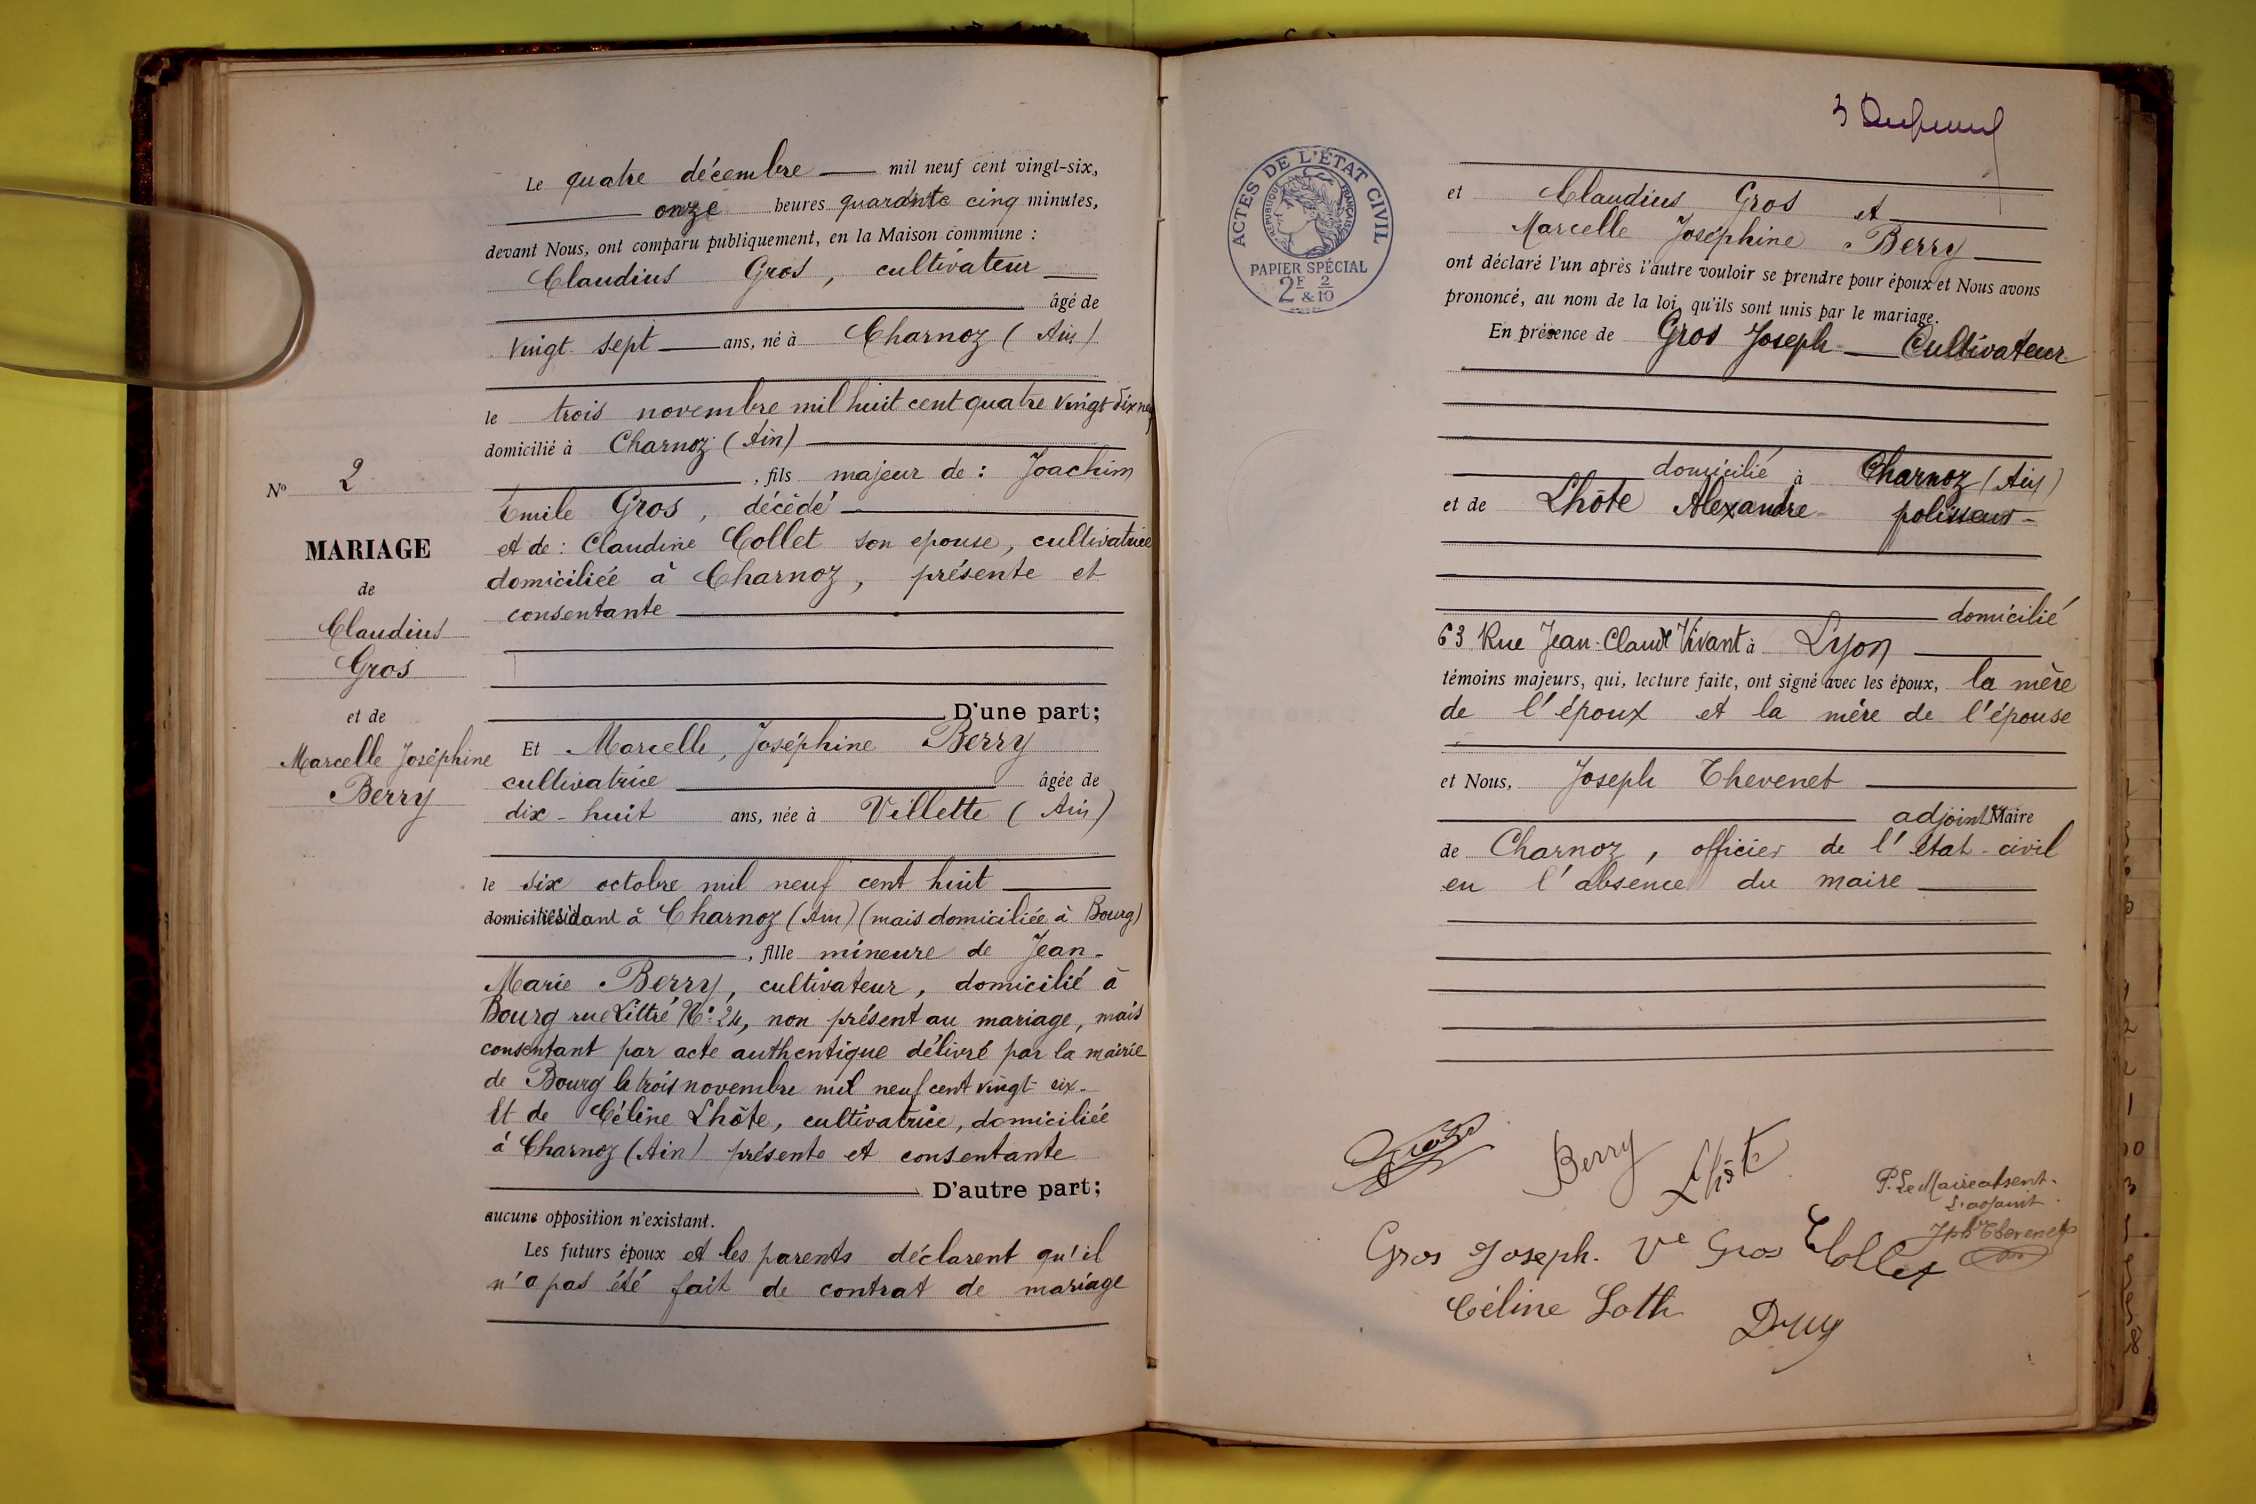 Le quatre décembre mil neuf cent vingt-six,
onze heures quarante cinq minutes,
devant Nous, ont comparu publiquement, en la Maison commune :
Claudius Gros, cultivateur
âgé de
vingt sept ans, né à Charnoz (Ain)
le trois novembre mil huit cent quatre vingt dix neuf
domicilié à Charnoz (Ain)
, fils majeur de : Joachim
Emile Gros, décédé
et de : Claudine Collet son epouse, cultivatrice
domiciliée à Charnoz, présente et
consentante
D'une part;
Et Marcelle, Joséphine Berry
cultivatrice âgée de
dix-huit ans, née à Villette (Ain)
le six octobre mil neuf cent huit
résidant à Charnoz (Ain) (mais domiciliée à Bourg)
, fille mineure de Jean-
Marie Berry, cultivateur, domicilié à
Bourg rue Littré N° 24, non présent au mariage, mais
consentant par acte authentique délivré par la mairie
de Bourg le trois novembre mil neuf cent vingt-six-
Et de Céline Lhôte, cultivatrice, domiciliée
à Charnoz (Ain) présente et consentante
D'autre part;
aucune opposition n'existant.
Les futurs époux et les parents déclarent qu'il
n'a pas été fait de contrat de mariage
N° 2
MARIAGE
de
Claudius
Gros
et de
Marcelle Joséphine
Berry
ACTES DE L'ÉTAT CIVIL
RÉPUBLIQUE FRANÇAISE
PAPIER SPÉCIAL
2F & 2/10
et Claudius Gros et
Marcelle Joséphine Berry
ont déclaré l'un après l'autre vouloir se prendre pour époux et Nous avons
prononcé, au nom de la loi, qu'ils sont unis par le mariage.
En présence de Gros Joseph Cultivateur
domicilié à Charnoz (Ain)
et de Lhôte Alexandre polisseur
domicilié
63 Rue Jean-Claude Vivant à Lyon
témoins majeurs, qui, lecture faite, ont signé avec les époux, la mère
de l'époux et la mère de l'épouse
et Nous, Joseph Thevenet
adjoint Maire
de Charnoz, officier de l'état-civil
en l'absence du maire
Gros
Berry
Lhôte
P. Le Maire absent.
L'adjoint
Jph Thevenet
Gros Joseph. Ve Gros Collet
Céline Loth